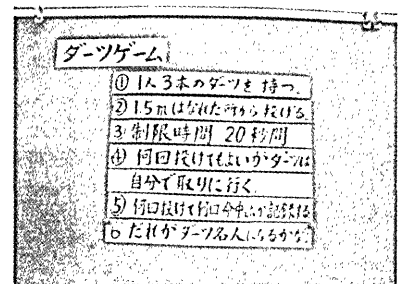 ダーツゲーム
① 1人3本のダーツを持つ.
② 1.5mはなれた所から投げる
3 制限時間 20秒間
④ 何回投げてもよいがダーツは
自分で取りに行く
5) 何回投げて何回命中したか記録する
6 だれがダーツ名人になるかな.